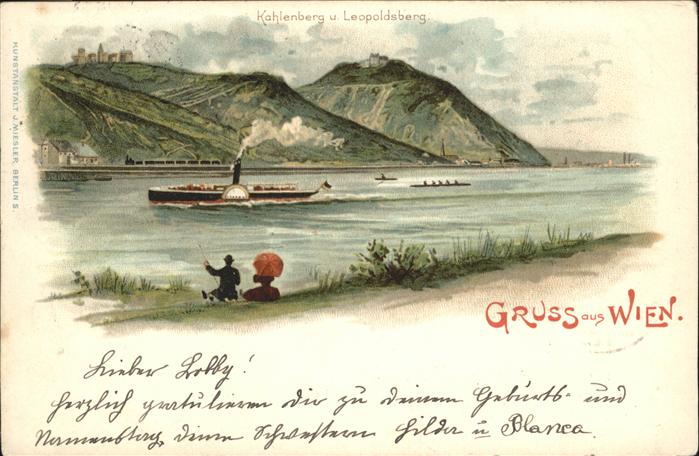 Kahlenberg u. Leopoldsberg.
KUNSTANSTALT J. MIESLER, BERLIN S
GRUSS aus WIEN.
Lieber Bobby!
herzlich gratulieren dir zu deinem Geburts- und
Namenstag deine Schwestern Hilda u Blanca.